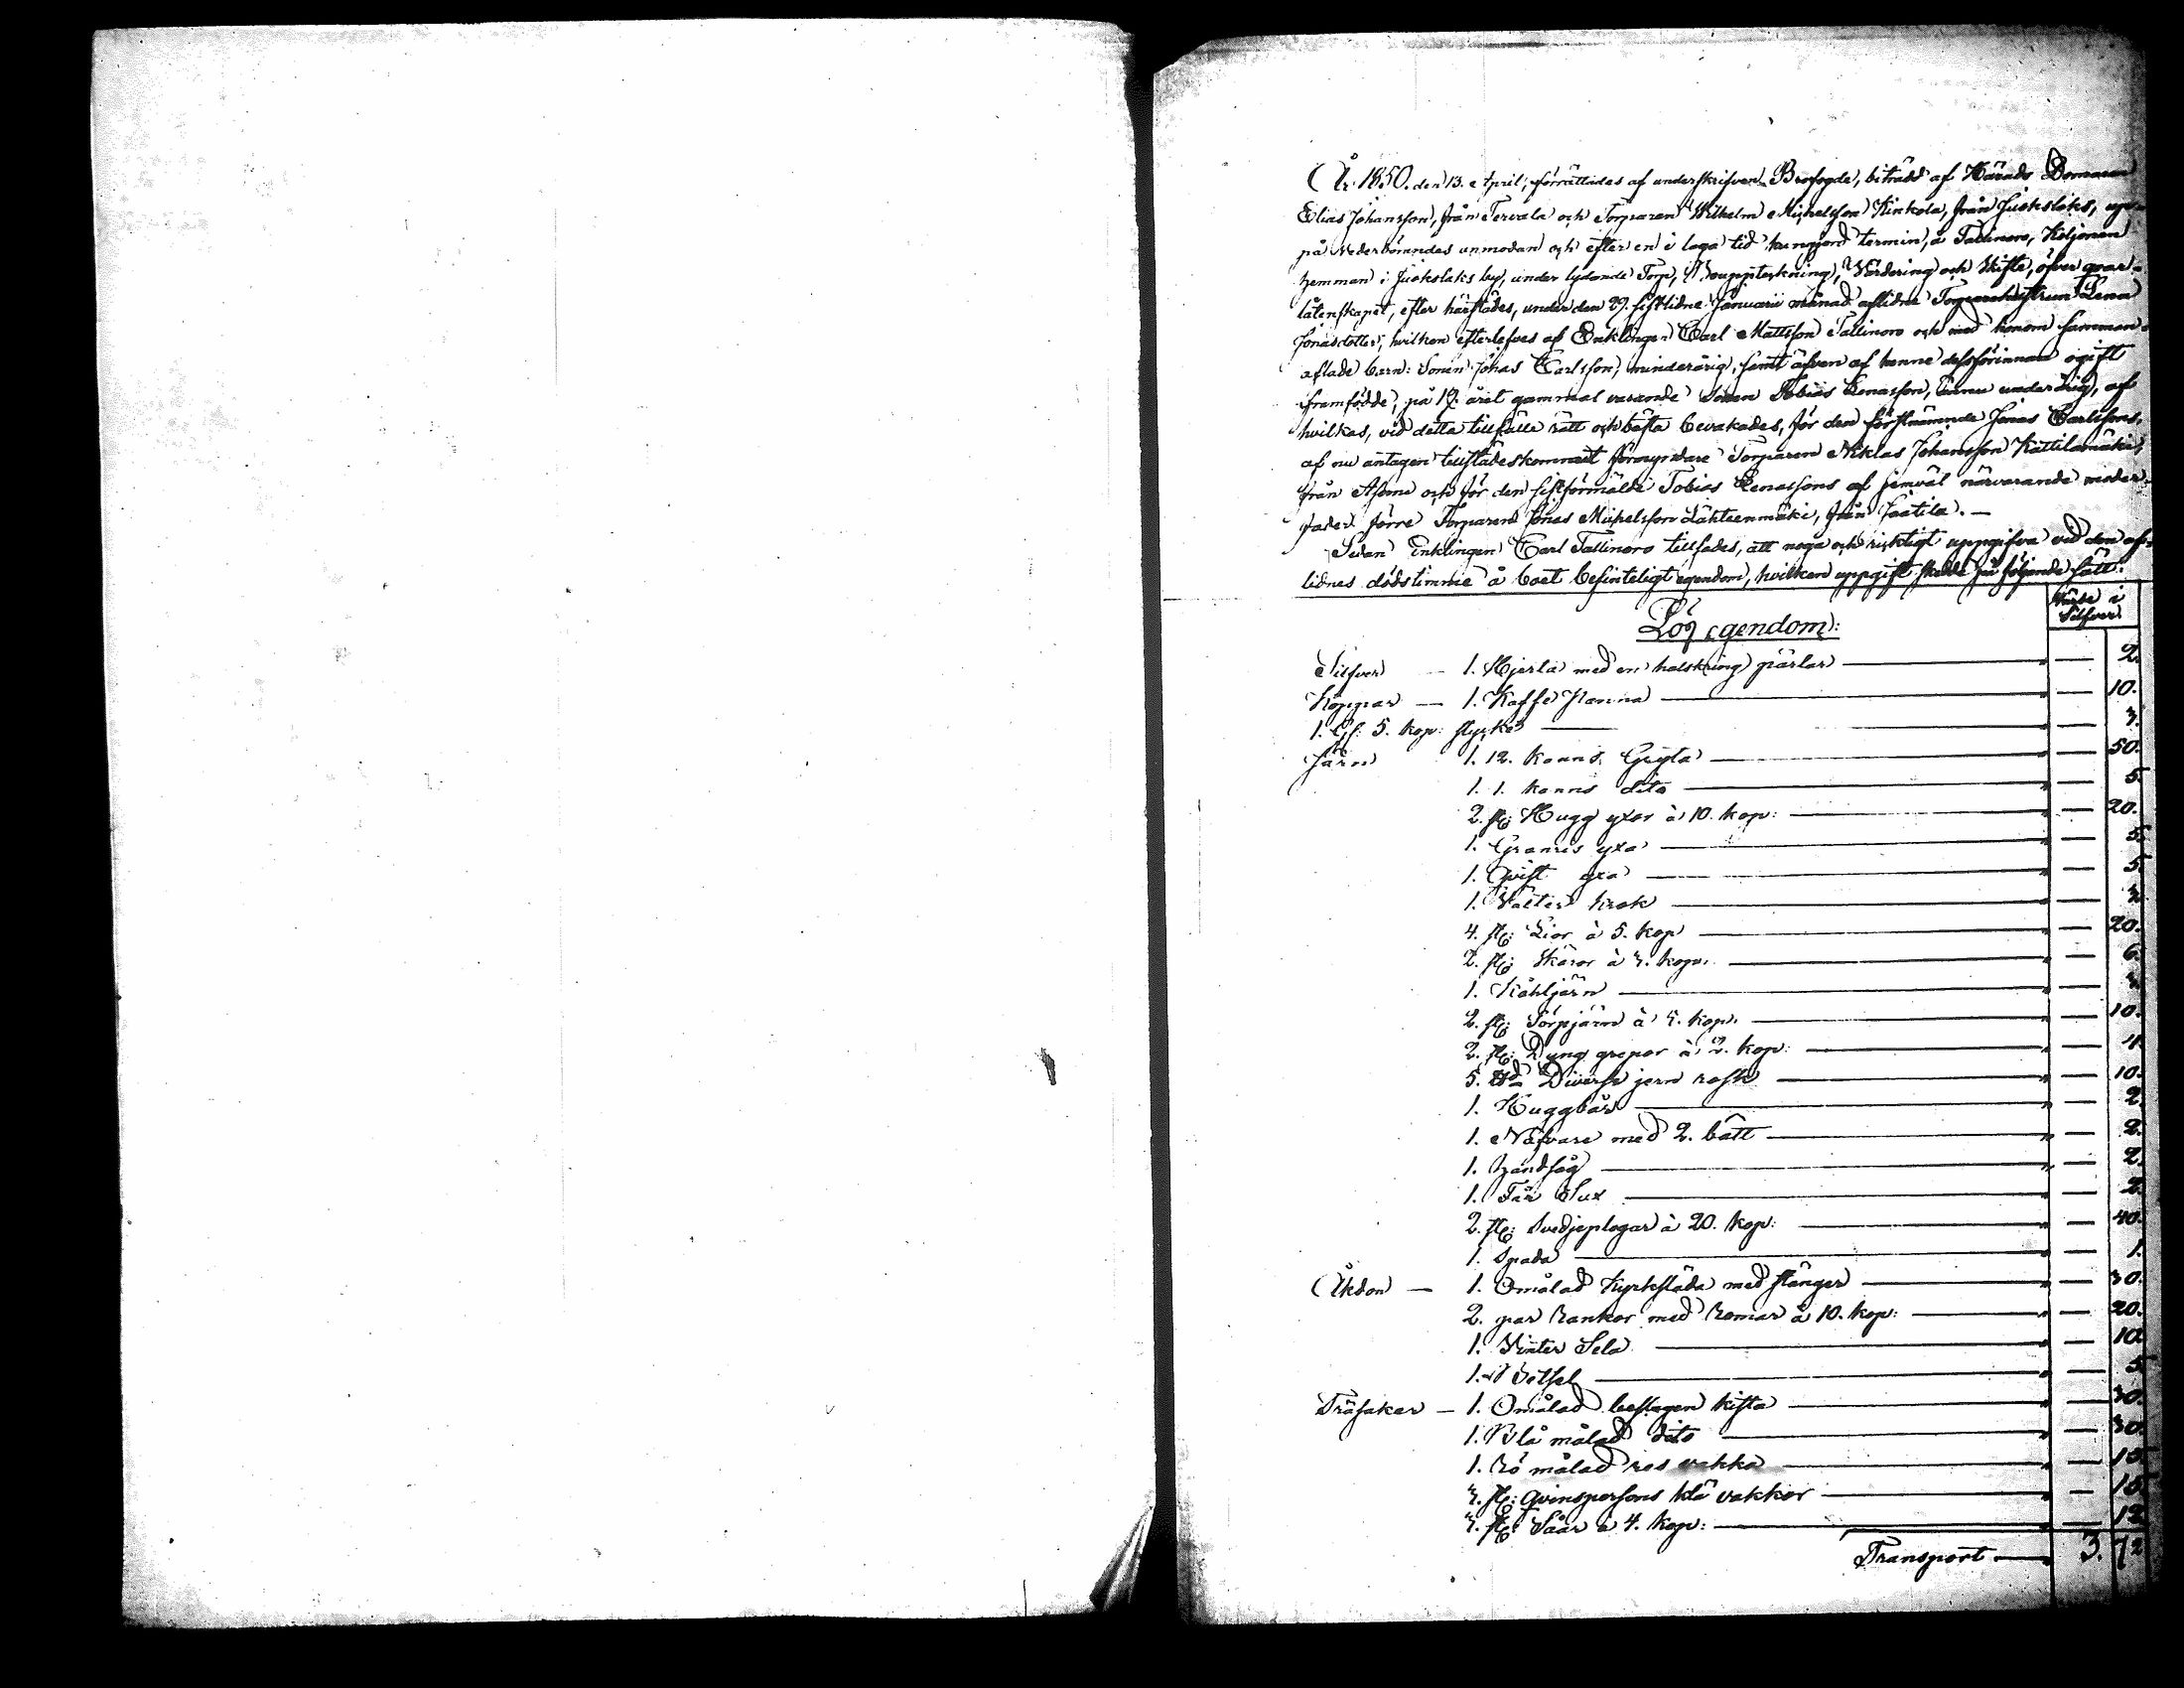 År 1850. den 13. April, förrättades af underskrifven Brofogde, biträdd af Härads Domaren
Elias Johansson, från Tervala och Torparen Wilhelm Michelsson Kinkola, från Juokslaks, upp
på vederbörandes anmodan och efter en i laga tid kungjord termin, å Tallinoro, Koljonen
hemman i Juokslaks by, under lydande Torp, Bouppteckning, Värdering och Skifte, öfver qvar-
låtenskapet, efter härstädes, under den 29. sistlidne Januarii månad aflidne Torparehustrun Lena
Jonasdotter, hvilken efterlefves af Enklingen Carl Mattsson Tallinoro och med honom samman-
aflade barn: Sonen Johas Carlsson, minderårig, samt äfven af henne dessförinnan ogift
framfödde, på 19. året gammal varande Sonen Tobias Lenasson, ännu under årig, af
hvilkas, vid detta tillfälle rätt och bästa bevakades, för den förstnämnde Jonas Carlssons,
af nu antagen tillstädeskommit förmyndare Torparen Niklas Johansson Kattilamäki,
från Asome och för den sistförmälde Tobias Lenassons af jemväl närvarande moder-
fader förre Torparen Jonas Michelsson Lähteenmäki, från Saatila. —
Sedan Enklingen Carl Tallinoro tillsades, att noga och riktigt uppgifva vid den af-
lidnes dödstimme å boet befinteligt egendom, hvilken uppgift skedde på följande sätt:
Värde i
Silfver
Lös egendom:
Silfver — 1. Hjerta med en halskring pärlor — " — 2.
Koppar — 1. Kaffe Panna — " — 10.
1. st: 5. kop: stycke — " — 3.
Järn 1. 12. kanns Gryta — " — 50.
1. 1. kanns dito — " — 5.
2. st: Hugg yxor à 10. kop: — " — 20.
1. Granris yxa — " — 5.
1. Qvist yxa — " — 5.
1. krok — " — 3.
4. st: Lior à 5. kop — " — 20.
2. st: Skäror à 3. kop. — " — 6.
1. Kåhljärn — " — 3.
2. st: Sörpjärn à 5. kop. — " — 10.
2. st: Dyng grepor à 2. kop: — " — 4.
5. Diverse jern rask — " — 10.
1. Huggbår — " — 2.
1. Näfvare med 2. bått — " — 2.
1. Handsåg — " — 2.
1. Får Sax — " — 2.
2. st: Svedjeplogar à 20. kop: — " — 40.
1. Spada — " — 1.
Åkdon — 1. Omålad Kyrksläda med stänger — " — 30.
2. par Rankor med Remar à 10. kop: — " — 20.
1. Vinter Sela — " — 10.
1. Betsel — " — 5.
Träsaker — 1. Omålad beslagen kista — " — 30.
1. Blå målad dito — " — 30.
1. Rö målad res vakka — " — 15
3. st: qvinspersons klä vakkor — " — 15.
3. st: Såar à 4. kop: — " — 12
Transport — " 3. 72